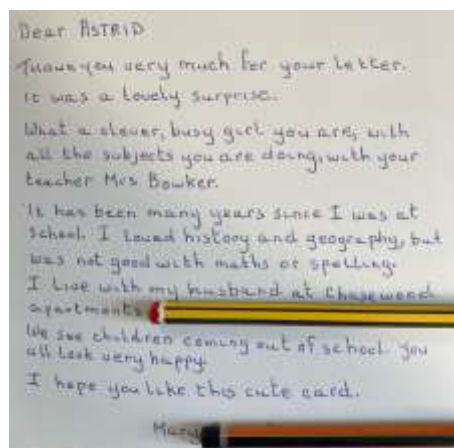 Dear ASTRID
Thank you very much for your letter.
It was a lovely surprise.
What a clever, busy girl you are, with
all the subjects you are doing, with your
teacher Mrs Bowker.
It has been many years since I was at
school. I loved history and geography, but
was not good with maths or spelling.
I live with my husband at Chasewood
apartments
We see children coming out of school you
all look very happy
I hope you like this cute card.
Mary